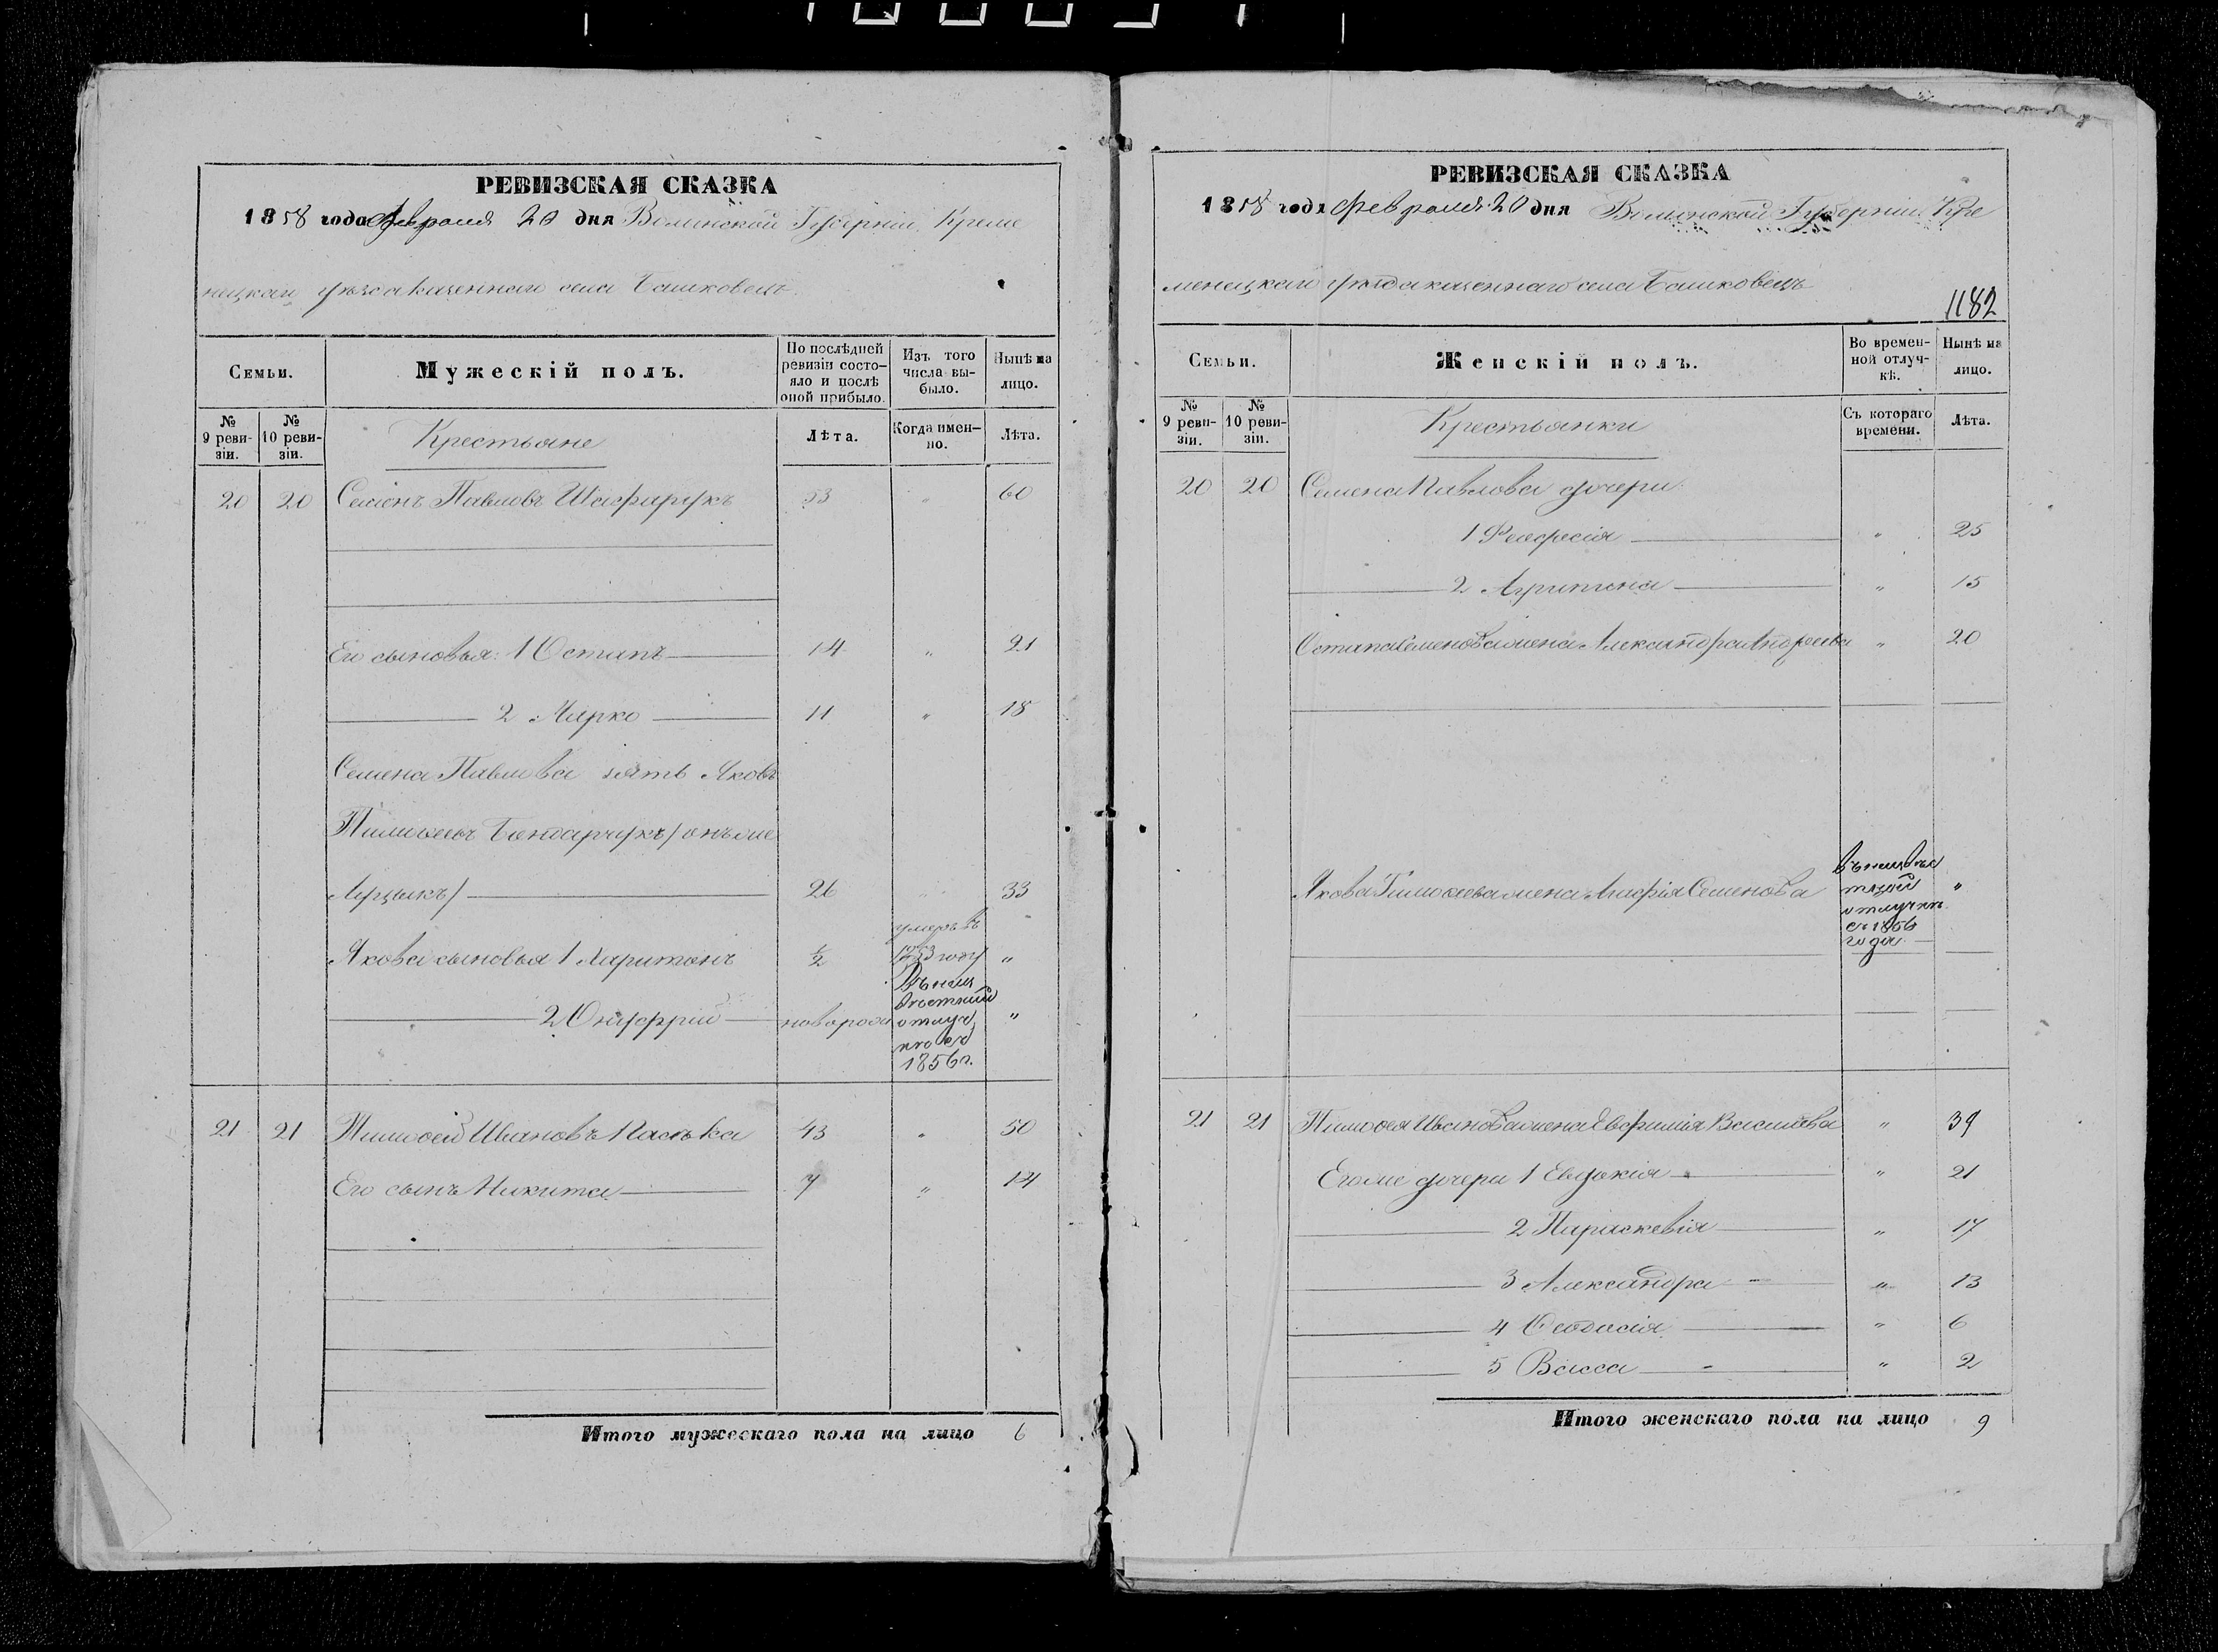 РЕВИЗСКАЯ СКАЗКА
1858 года февраля 20 дня Волынской Губерніи Креме
нецкаго уѣзда казеннаго села Башковецъ
Семьи.
Мужескій полъ.
По послѣдней ревизіи состояло и послѣ оной прибыло.
Изъ того числа выбыло.
Нынѣ на лицо.
№ 9 ревизіи.
№ 10 ревизіи.
Крестьяне
Лѣта.
Когда именно.
Лѣта.
20 20 Семенъ Павловъ Шафарукъ 53 " 60
Его сыновья: 1 Остапъ 14 " 21
2 Марко 11 " 18
Семена Павлова зять Яковъ
Тимофеевъ Бондарчукъ/онъ же
26 " 33
Якова сыновья 1 Харитонъ ½ умеръ въ 1853 году "
2 Онуфрий новорожд 1856 г. "
21 21 Тимофей Ивановъ Пасѣка 43 " 50
Его сынъ Никита 7 " 14
Итого мужескаго пола на лицо 6
РЕВИЗСКАЯ СКАЗКА
1858 года февраля 20 дня Волынской Губерніи Кре
менецкаго уѣзда казеннаго села Башковецъ
1182
Семьи.
Женскій полъ.
Во временной отлучкѣ.
Нынѣ на лицо.
№ 9 ревизіи.
№ 10 ревизіи.
Крестьянки
Съ котораго времени.
Лѣта.
20 20 Семена Павлова дочери:
1 " 25
2 Агрипина " 15
Остапа Семенова жена Александра Андреева " 20
Якова Тимофеева жена Агафія Семенова въ неизвѣстной отлучкѣ съ 1856 года "
21 21 Тимофея Иванова жена Евфимія Васильева " 39
Его же дочери 1 Евдокія " 21
2 Параскевія " 17
3 Александра " 13
4 Ѳеодосія " 6
5 Васса " 2
Итого женскаго пола на лицо 9